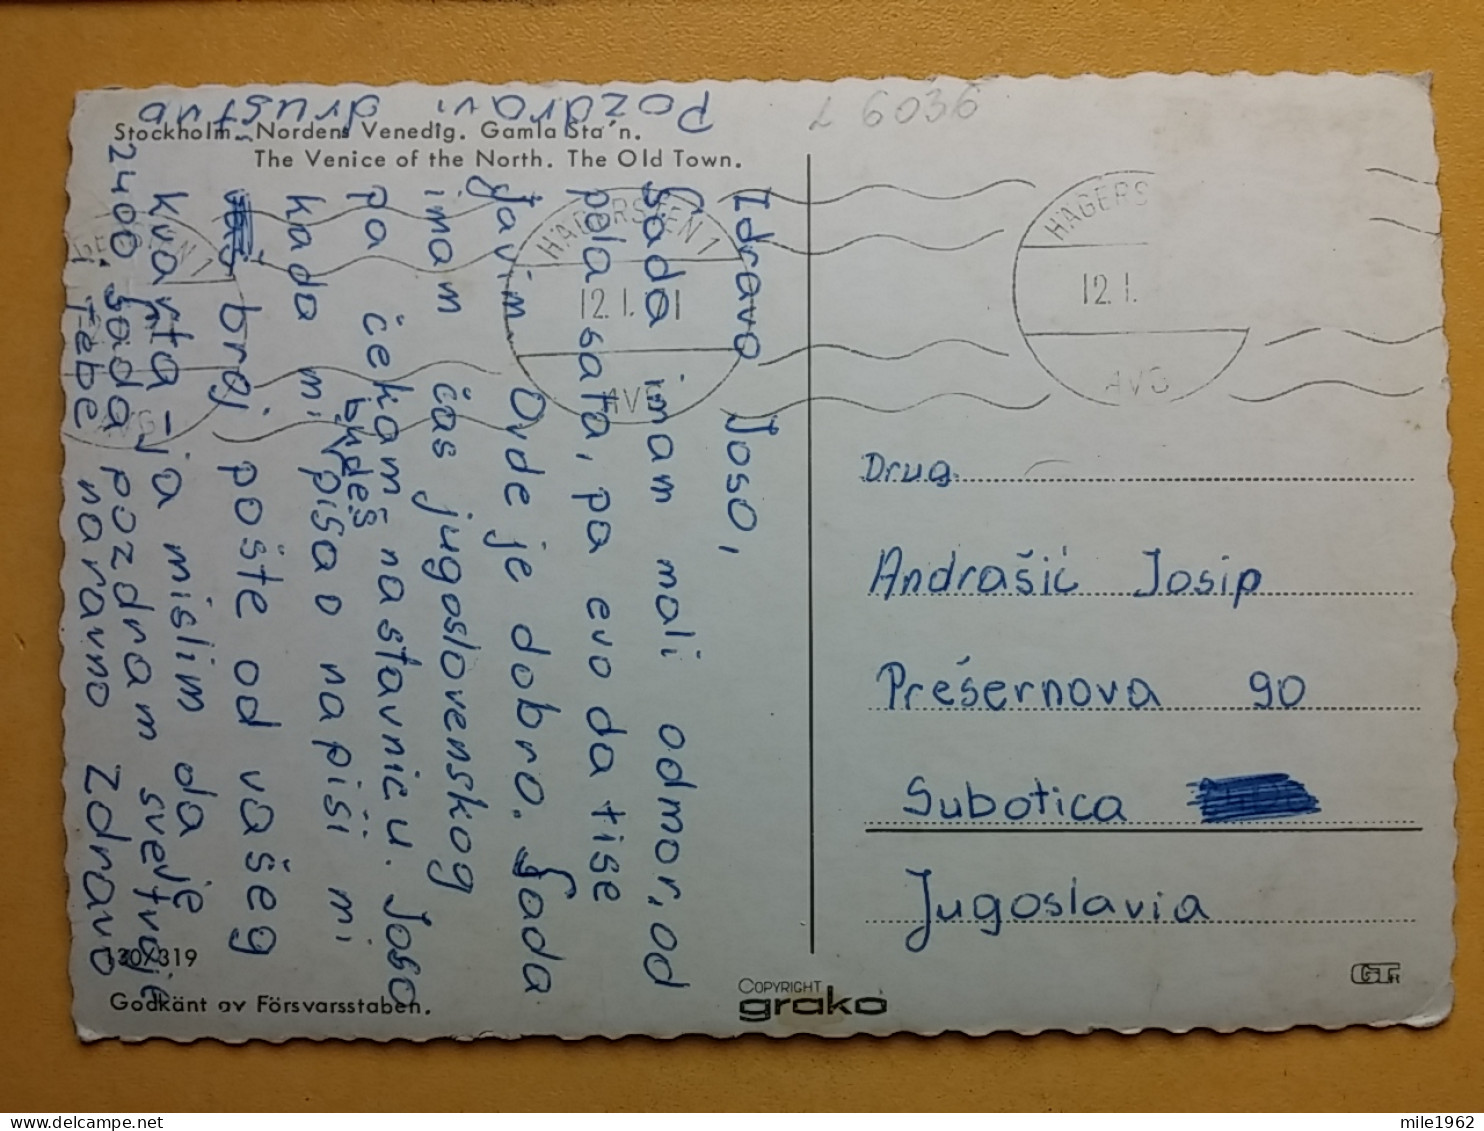 Stockholm. Nordens Venedig. Gamla Sta'n.
The Venice of the North. The Old Town.
L 6036
HÄGERSTEN 1
12. 1. 71
AVG
HÄGERS
12. 1.
AVG
Zdravo Joso,
Sada imam mali odmor, od
pola sata, pa evo da tise
javim. Ovde je dobro. Sada
imam čas jugoslovenskog
pa čekam nastavnicu. Joso
kada mi budeš pisao napiši mi
broj pošte od vašeg
kvarta - ja mislim da je
2400 Sada pozdram sve
i Tebe naravno Zdravo
Pozdravi društvo
Drug.
Andrašić Josip
Prešernova 90
Subotica
Jugoslavia
120/319
Godkänt av Försvarsstaben.
COPYRIGHT
grako
mile1962